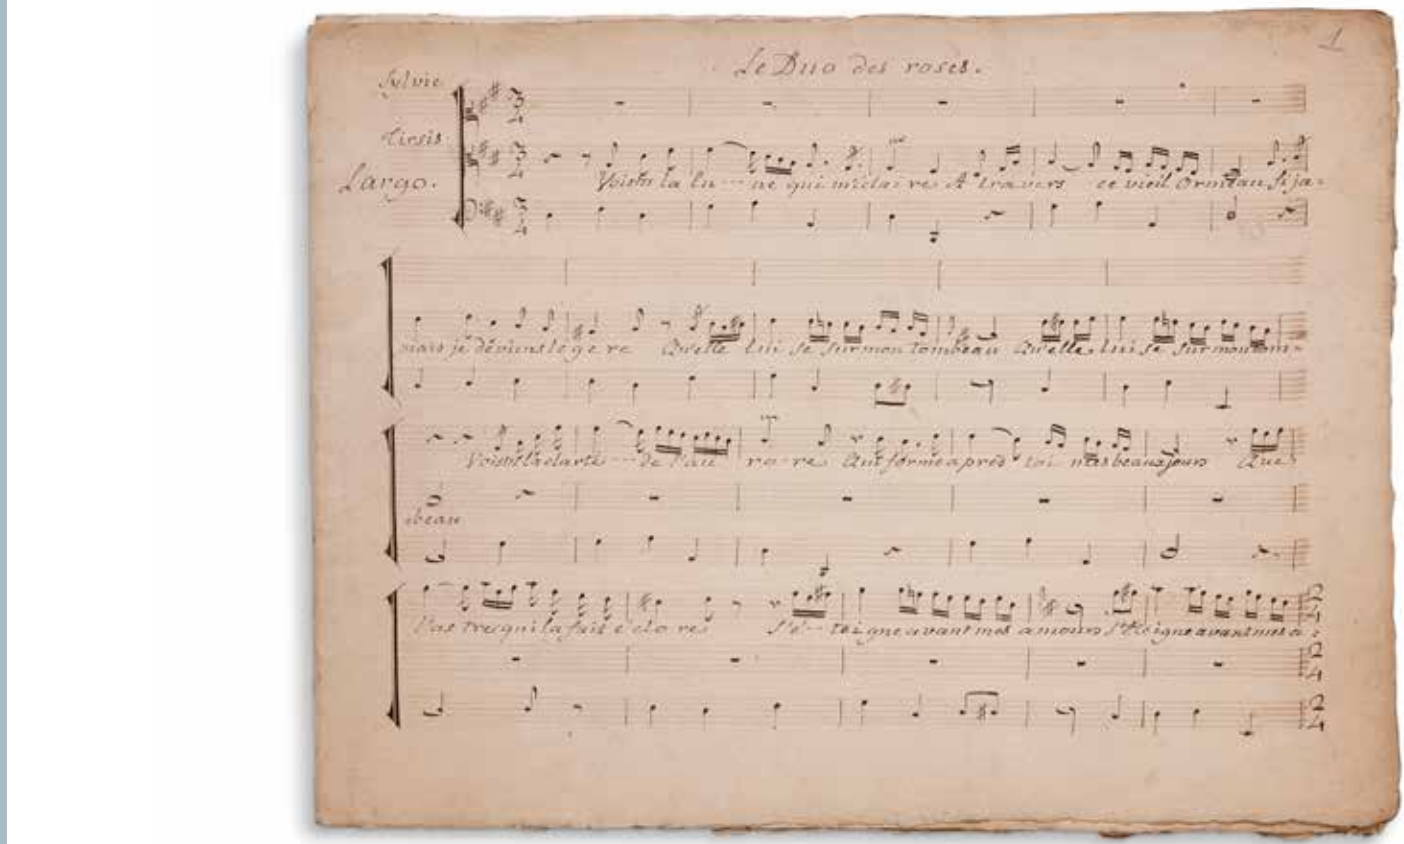 1
Le Duo des roses.
Sylvie
3
4
Tirsis
3
4
Largo.
Vois tu la lu--ne qui m'eclai re A travers ce vieil Ormeau Si ja-
3
4
mais je deviens le ge re Qu'elle lui se sur mon tombeau Qu'elle lui se sur mon tom-
Vois tu la clarte--de l'au ro-re. Au près toi mes beaux jours Que
beau
l'as tre qui la fait e clo re S'e--loi gne avant mes amours S'eloigne avant mes a-
2
4
2
4
2
4